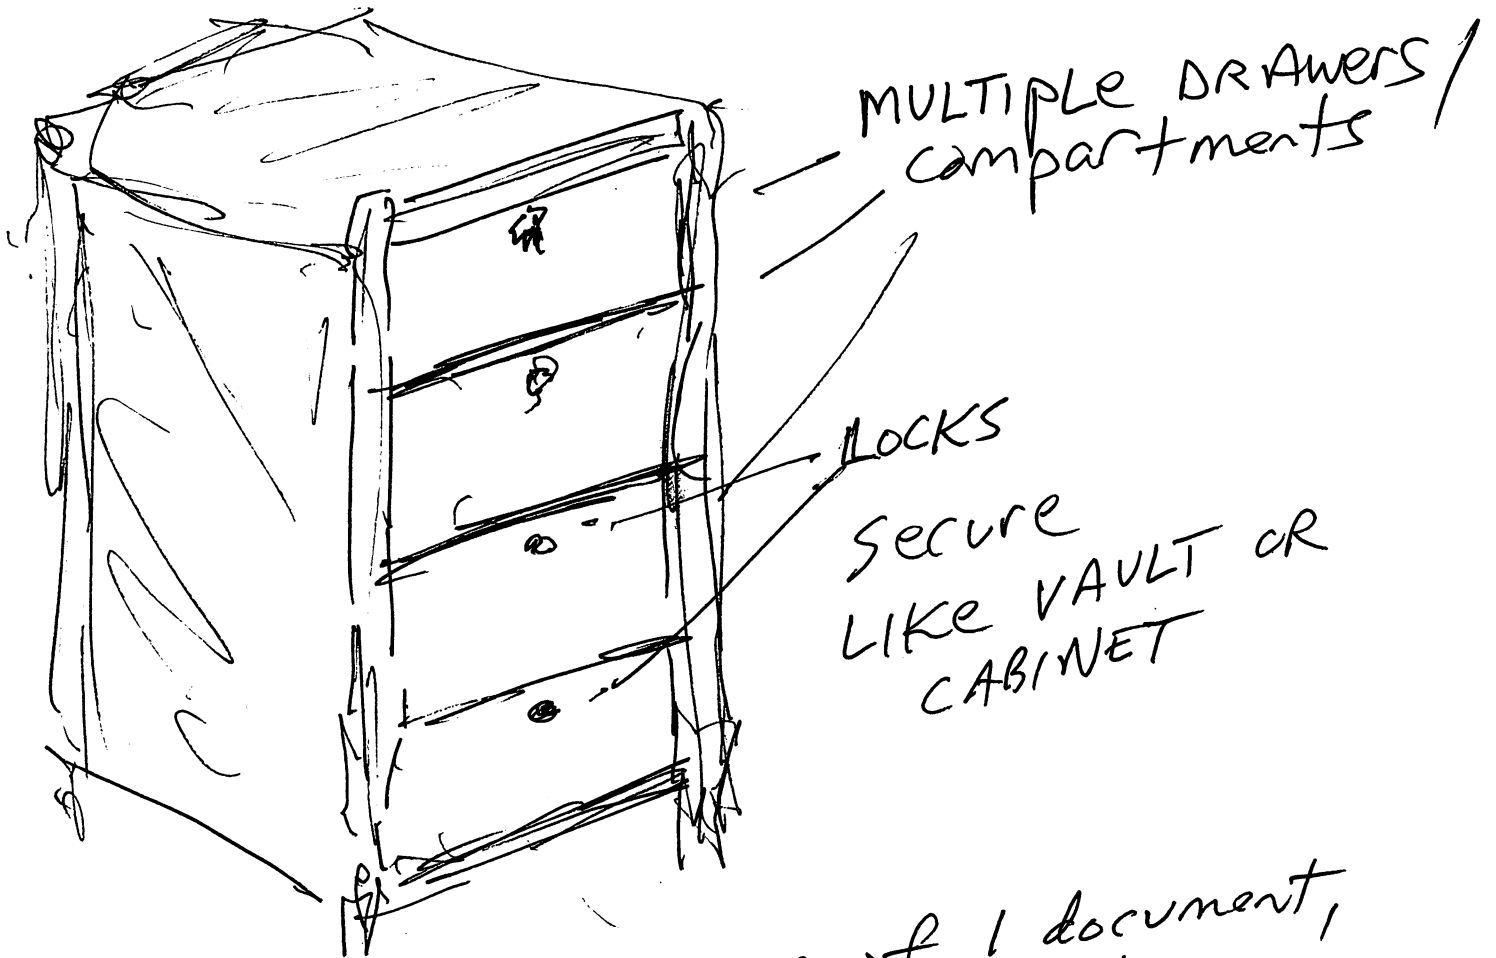 MULTIPLE DRAWERS /
compartments
LOCKS
secure
LIKE VAULT OR
CABINET
of 1 document,